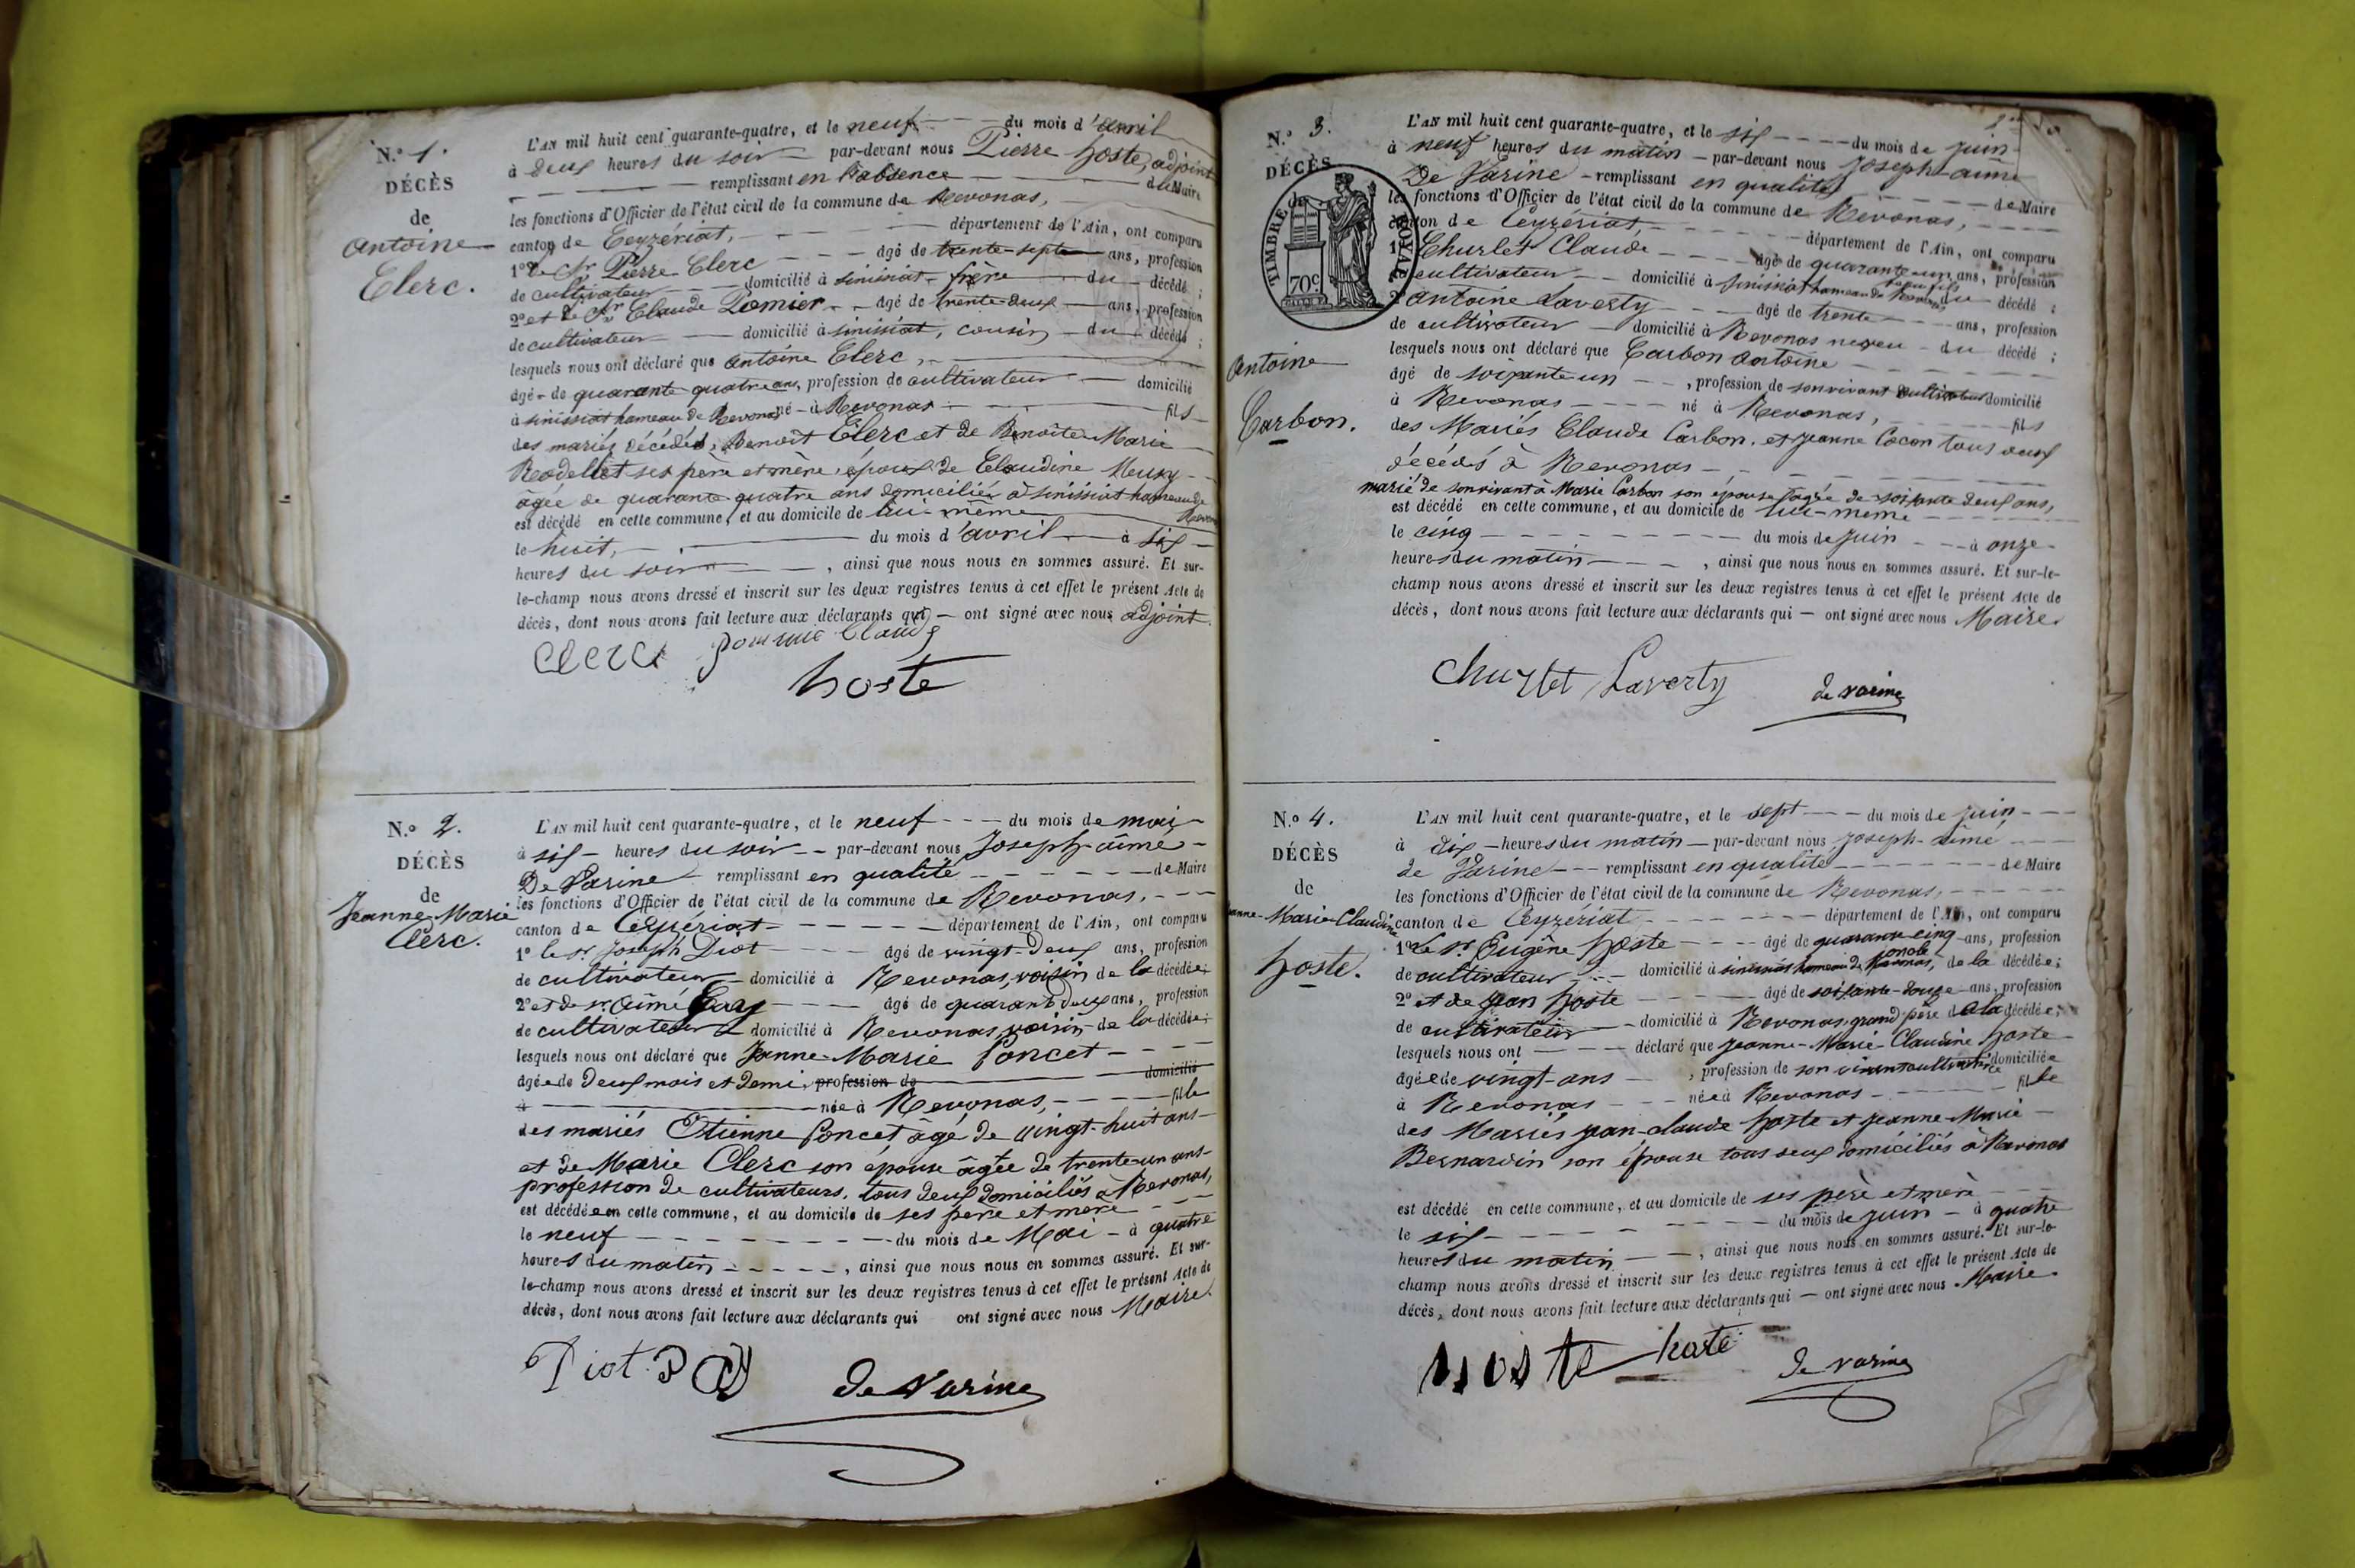 N.º 1.
DÉCÈS
de
Antoine
Clerc.
L'AN mil huit cent quarante-quatre, et le neuf du mois d'avril
à deux heures du soir par-devant nous Pierre hoste, adjoint
remplissant en l'absence du Maire
les fonctions d'Officier de l'état civil de la commune de Revonas,
canton de Ceyzériat, département de l'Ain, ont comparu
1º le Sr Pierre Clerc âgé de trente-sept ans, profession
de cultivateur domicilié à sinissiat frère du décédé ;
2º et le Sr Claude Pomier âgé de trente-deux ans, profession
de cultivateur domicilié à sinissiat, cousin du décédé ;
lesquels nous ont déclaré que Antoine Clerc,
âgé de quarante quatre ans, profession de cultivateur domicilié
à sinissiat hameau de Revonas né à Revonas fils
des mariés décédés, Benoit Clerc et de Benoite Marie
Rodellet ses père et mère, époux de Claudine
âgée de quarante quatre ans domiciliée à sinissiat hameau de
Revonas
est décédé en cette commune, et au domicile de lui-même
le huit, du mois d'avril à six
heures du soir, ainsi que nous nous en sommes assuré. Et sur-
le-champ nous avons dressé et inscrit sur les deux registres tenus à cet effet le présent Acte de
décès, dont nous avons fait lecture aux déclarants qui ont signé avec nous adjoint.
Clerc pommie Claude
hoste
N.º 2.
DÉCÈS
de
Jeanne-Marie
Clerc.
L'AN mil huit cent quarante-quatre, et le neuf du mois de mai
à six heures du soir par-devant nous Joseph-aimé
De Varine remplissant en qualité de Maire
les fonctions d'Officier de l'état civil de la commune de Revonas,
canton de Ceyzériat département de l'Ain, ont comparu
1º le sr. Joseph Piot âgé de vingt-deux ans, profession
de cultivateur domicilié à Revonas, voisin de la décédée ;
2º et de sr. aimé âgé de quarante deux ans, profession
de cultivateur domicilié à Revonas voisin de la décédée ;
lesquels nous ont déclaré que Jeanne-Marie Poncet
âgée de deux mois et demi, profession de domicilié
à née à Revonas, fille
des mariés Etienne Poncet âgé de vingt-huit ans
et de Marie Clerc son épouse âgée de trente-un ans
profession de cultivateurs, tous deux domiciliés à Revonas,
est décédée en cette commune, et au domicile de ses père et mère
le neuf du mois de Mai à quatre
heures du matin, ainsi que nous nous en sommes assuré. Et sur-
le-champ nous avons dressé et inscrit sur les deux registres tenus à cet effet le présent Acte de
décès, dont nous avons fait lecture aux déclarants qui ont signé avec nous Maire.
Piot
de Varine
N.º 3.
DÉCÈS
de
TIMBRE ROYAL
70c
Antoine
Carbon.
L'AN mil huit cent quarante-quatre, et le six du mois de juin
à neuf heures du matin par-devant nous Joseph-aimé
De Varine remplissant en qualité de Maire
les fonctions d'Officier de l'état civil de la commune de Revonas,
canton de Ceyzériat, département de l'Ain, ont comparu
1º Churlet Claude âgé de quarante-un ans, profession
de cultivateur domicilié à sinissiat hameau de Revonas beau fils du décédé ;
2º Antoine Laverty âgé de trente ans, profession
de cultivateur domicilié à Revonas neveu du décédé ;
lesquels nous ont déclaré que Carbon Antoine
âgé de soixante un, profession de son vivant cultivateur domicilié
à Revonas né à Revonas, fils
des Mariés Claude Carbon et Jeanne Cocon tous deux
décédés à Revonas
marié de son vivant à Marie Carbon son épouse âgée de soixante deux ans,
est décédé en cette commune, et au domicile de lui-même
le cinq du mois de juin à onze
heures du matin, ainsi que nous nous en sommes assuré. Et sur-le-
champ nous avons dressé et inscrit sur les deux registres tenus à cet effet le présent Acte de
décès, dont nous avons fait lecture aux déclarants qui ont signé avec nous Maire
Churlet Laverty de varine
N.º 4.
DÉCÈS
de
Jeanne-Marie-Claudine
hoste.
L'AN mil huit cent quarante-quatre, et le sept du mois de juin
à dix heures du matin par-devant nous Joseph-aimé
de Varine remplissant en qualité de Maire
les fonctions d'Officier de l'état civil de la commune de Revonas,
canton de Ceyzériat département de l'Ain, ont comparu
1º Le sr. Eugène hoste âgé de quarante cinq ans, profession
de cultivateur domicilié à sinissiat hameau de Revonas, oncle de la décédée ;
2º et de jean hoste âgé de soixante-douze ans, profession
de cultivateur domicilié à Revonas, grand père de la décédée ;
lesquels nous ont déclaré que Jeanne-Marie-Claudine hoste
âgée de vingt-ans, profession de son vivant cultivatrice domiciliée
à Revonas née à Revonas fille
des Mariés jean-claude hoste et jeanne-Marie
Bernardin son épouse tous deux domiciliés à Revonas
est décédé en cette commune, et au domicile de ses père et mère
le six du mois de juin à quatre
heures du matin, ainsi que nous nous en sommes assuré. Et sur-le-
champ nous avons dressé et inscrit sur les deux registres tenus à cet effet le présent Acte de
décès, dont nous avons fait lecture aux déclarants qui ont signé avec nous Maire
hoste hoste de varine